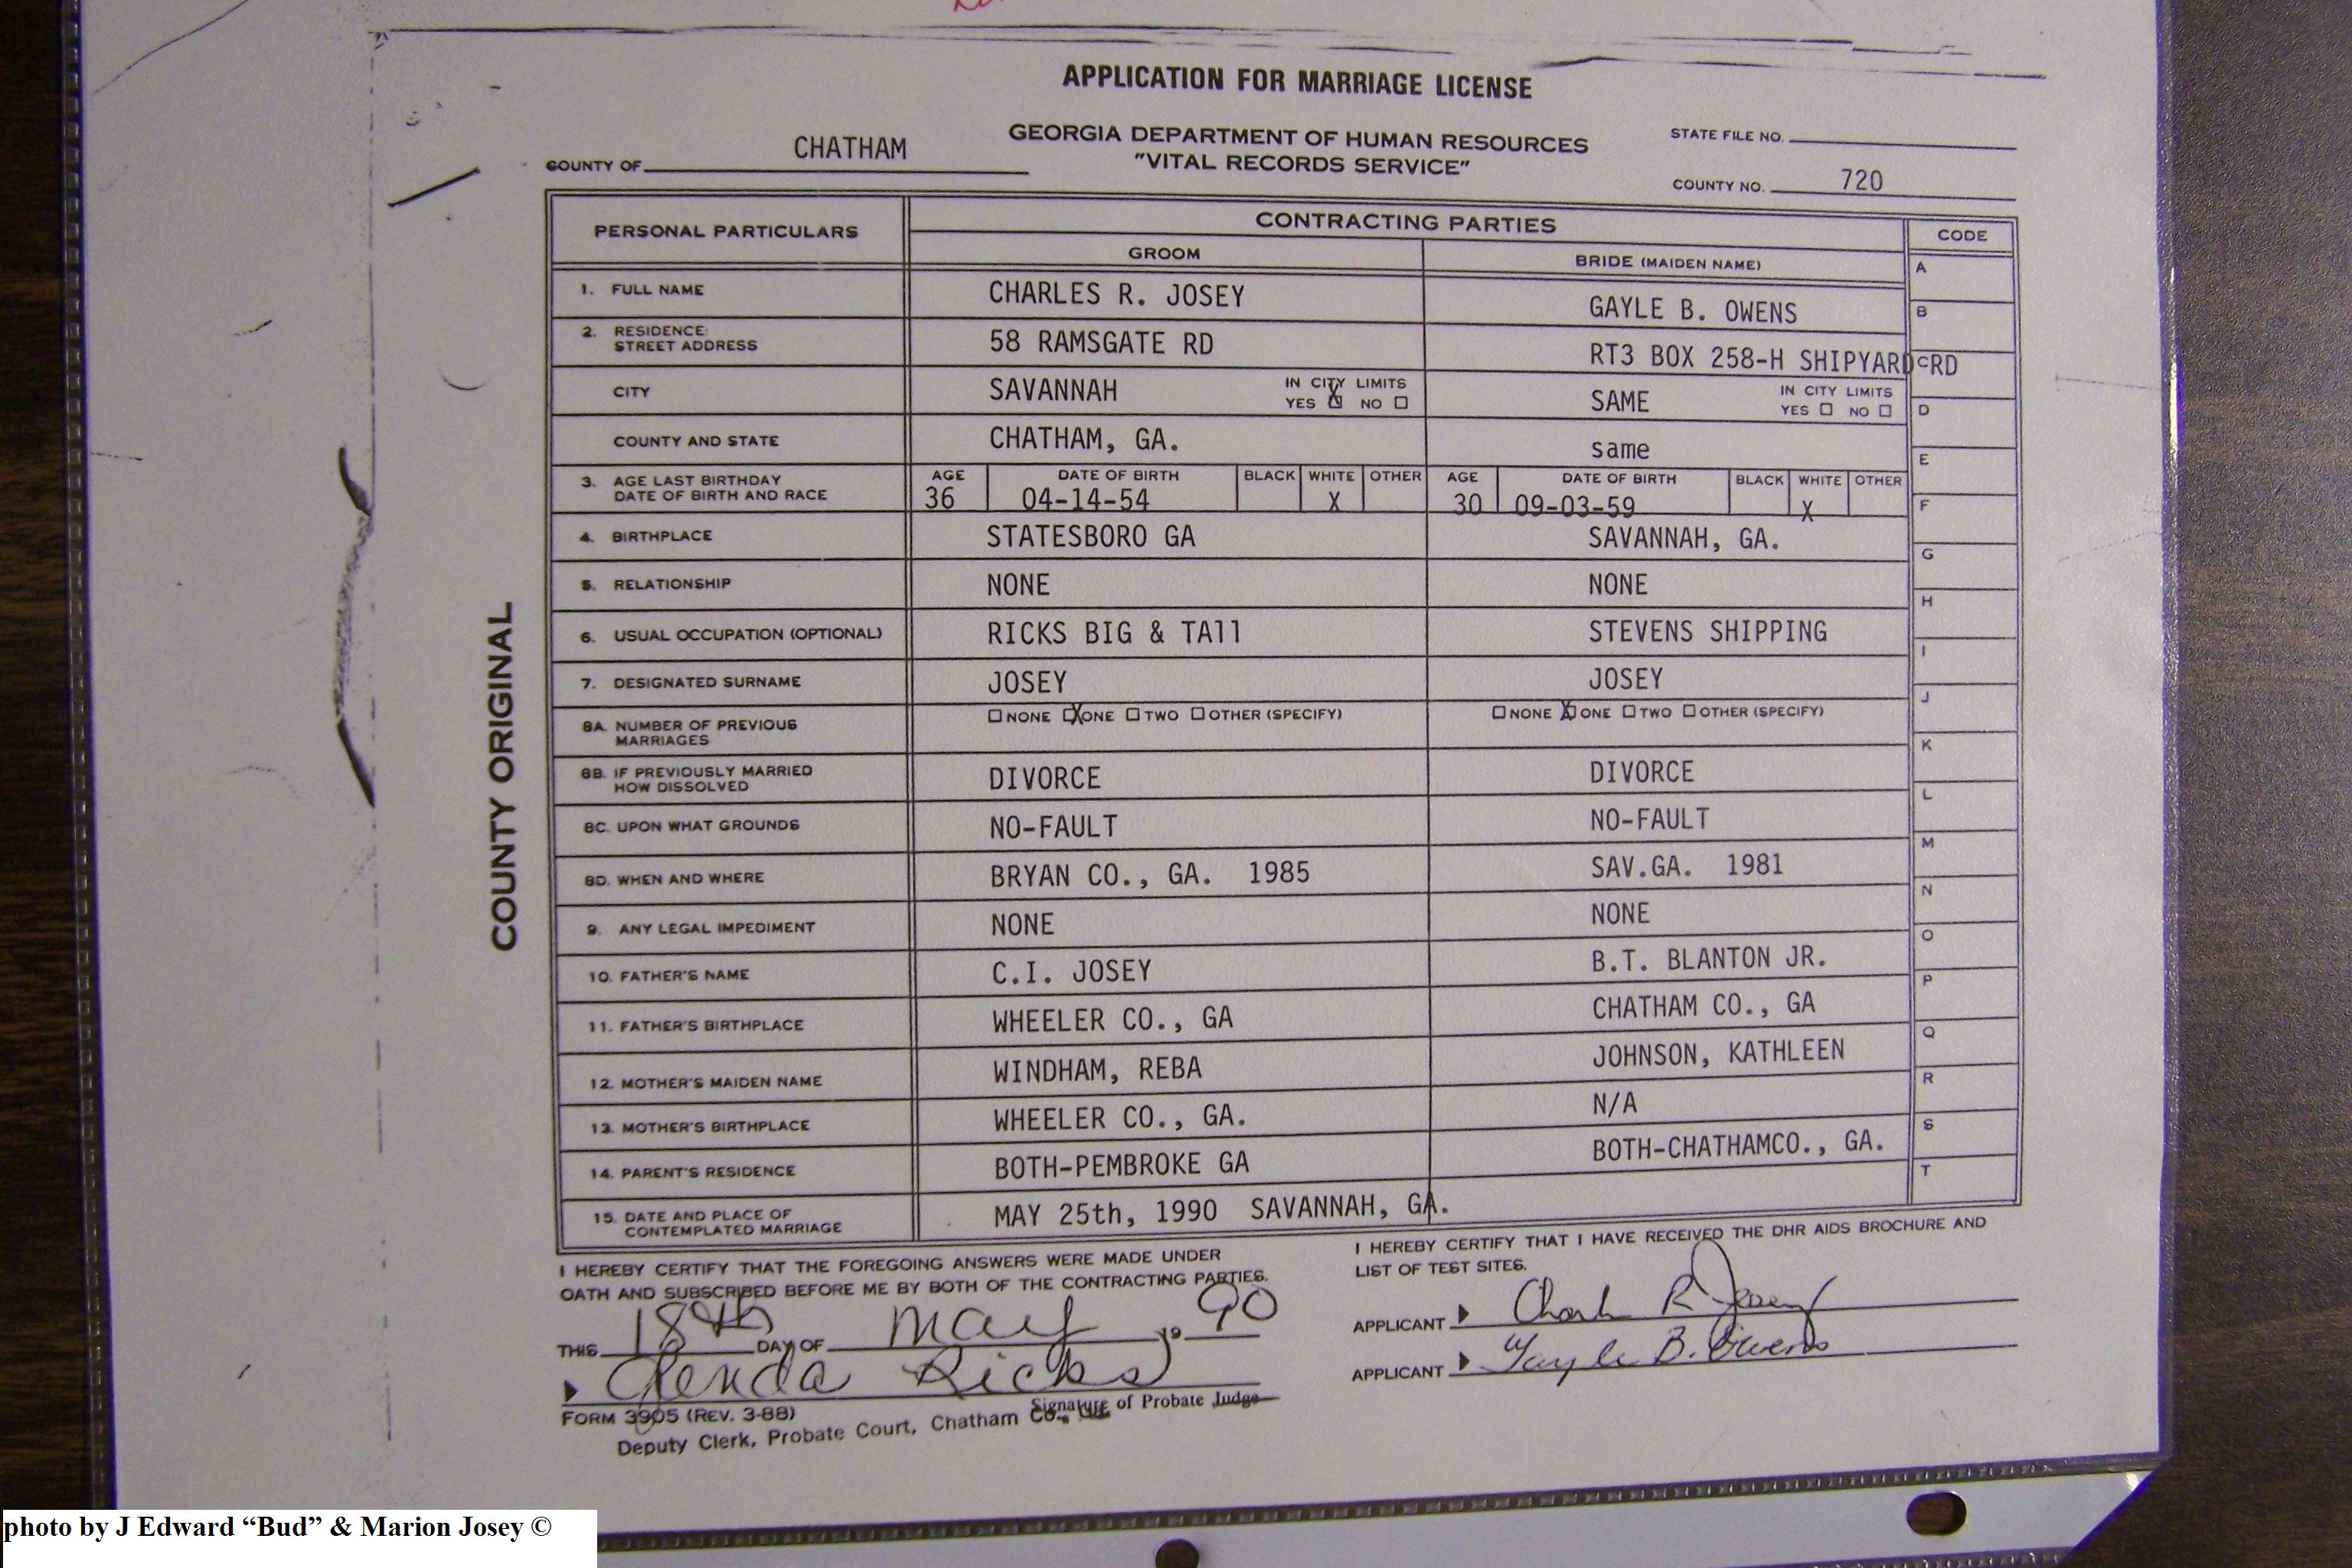 APPLICATION FOR MARRIAGE LICENSE
GEORGIA DEPARTMENT OF HUMAN RESOURCES
"VITAL RECORDS SERVICE"
COUNTY OF CHATHAM
STATE FILE NO.
COUNTY NO. 720
COUNTY ORIGINAL
PERSONAL PARTICULARS CONTRACTING PARTIES CODE
GROOM BRIDE (MAIDEN NAME) A
1. FULL NAME CHARLES R. JOSEY GAYLE B. OWENS B
2. RESIDENCE:
STREET ADDRESS 58 RAMSGATE RD RT3 BOX 258-H SHIPYARD RD C
CITY SAVANNAH IN CITY LIMITS SAME IN CITY LIMITS
YES X NO YES NO D
COUNTY AND STATE CHATHAM, GA. same E
3. AGE LAST BIRTHDAY AGE DATE OF BIRTH BLACK WHITE OTHER AGE DATE OF BIRTH BLACK WHITE OTHER
DATE OF BIRTH AND RACE 36 04-14-54 X 30 09-03-59 X F
4. BIRTHPLACE STATESBORO GA SAVANNAH, GA. G
5. RELATIONSHIP NONE NONE H
6. USUAL OCCUPATION (OPTIONAL) RICKS BIG & TAll STEVENS SHIPPING I
7. DESIGNATED SURNAME JOSEY JOSEY J
8A. NUMBER OF PREVIOUS NONE X ONE TWO OTHER (SPECIFY) NONE X ONE TWO OTHER (SPECIFY)
MARRIAGES K
8B. IF PREVIOUSLY MARRIED
HOW DISSOLVED DIVORCE DIVORCE L
8C. UPON WHAT GROUNDS NO-FAULT NO-FAULT M
8D. WHEN AND WHERE BRYAN CO., GA. 1985 SAV.GA. 1981 N
9. ANY LEGAL IMPEDIMENT NONE NONE O
10. FATHER'S NAME C.I. JOSEY B.T. BLANTON JR. P
11. FATHER'S BIRTHPLACE WHEELER CO., GA CHATHAM CO., GA Q
12. MOTHER'S MAIDEN NAME WINDHAM, REBA JOHNSON, KATHLEEN R
13. MOTHER'S BIRTHPLACE WHEELER CO., GA. N/A S
14. PARENT'S RESIDENCE BOTH-PEMBROKE GA BOTH-CHATHAMCO., GA. T
15. DATE AND PLACE OF
CONTEMPLATED MARRIAGE MAY 25th, 1990 SAVANNAH, GA.
I HEREBY CERTIFY THAT THE FOREGOING ANSWERS WERE MADE UNDER
OATH AND SUBSCRIBED BEFORE ME BY BOTH OF THE CONTRACTING PARTIES.
THIS 18th DAY OF May 19 90
Glenda Ricks
Signature of Probate Judge
FORM 3905 (REV. 3-88)
Deputy Clerk, Probate Court, Chatham Co.,
I HEREBY CERTIFY THAT I HAVE RECEIVED THE DHR AIDS BROCHURE AND
LIST OF TEST SITES.
APPLICANT Charles R Josey
APPLICANT Gayle B. Owens
photo by J Edward “Bud” & Marion Josey ©